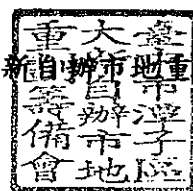 臺中市潭子區
大新自辦市地
重劃籌備會
新自辦市地重